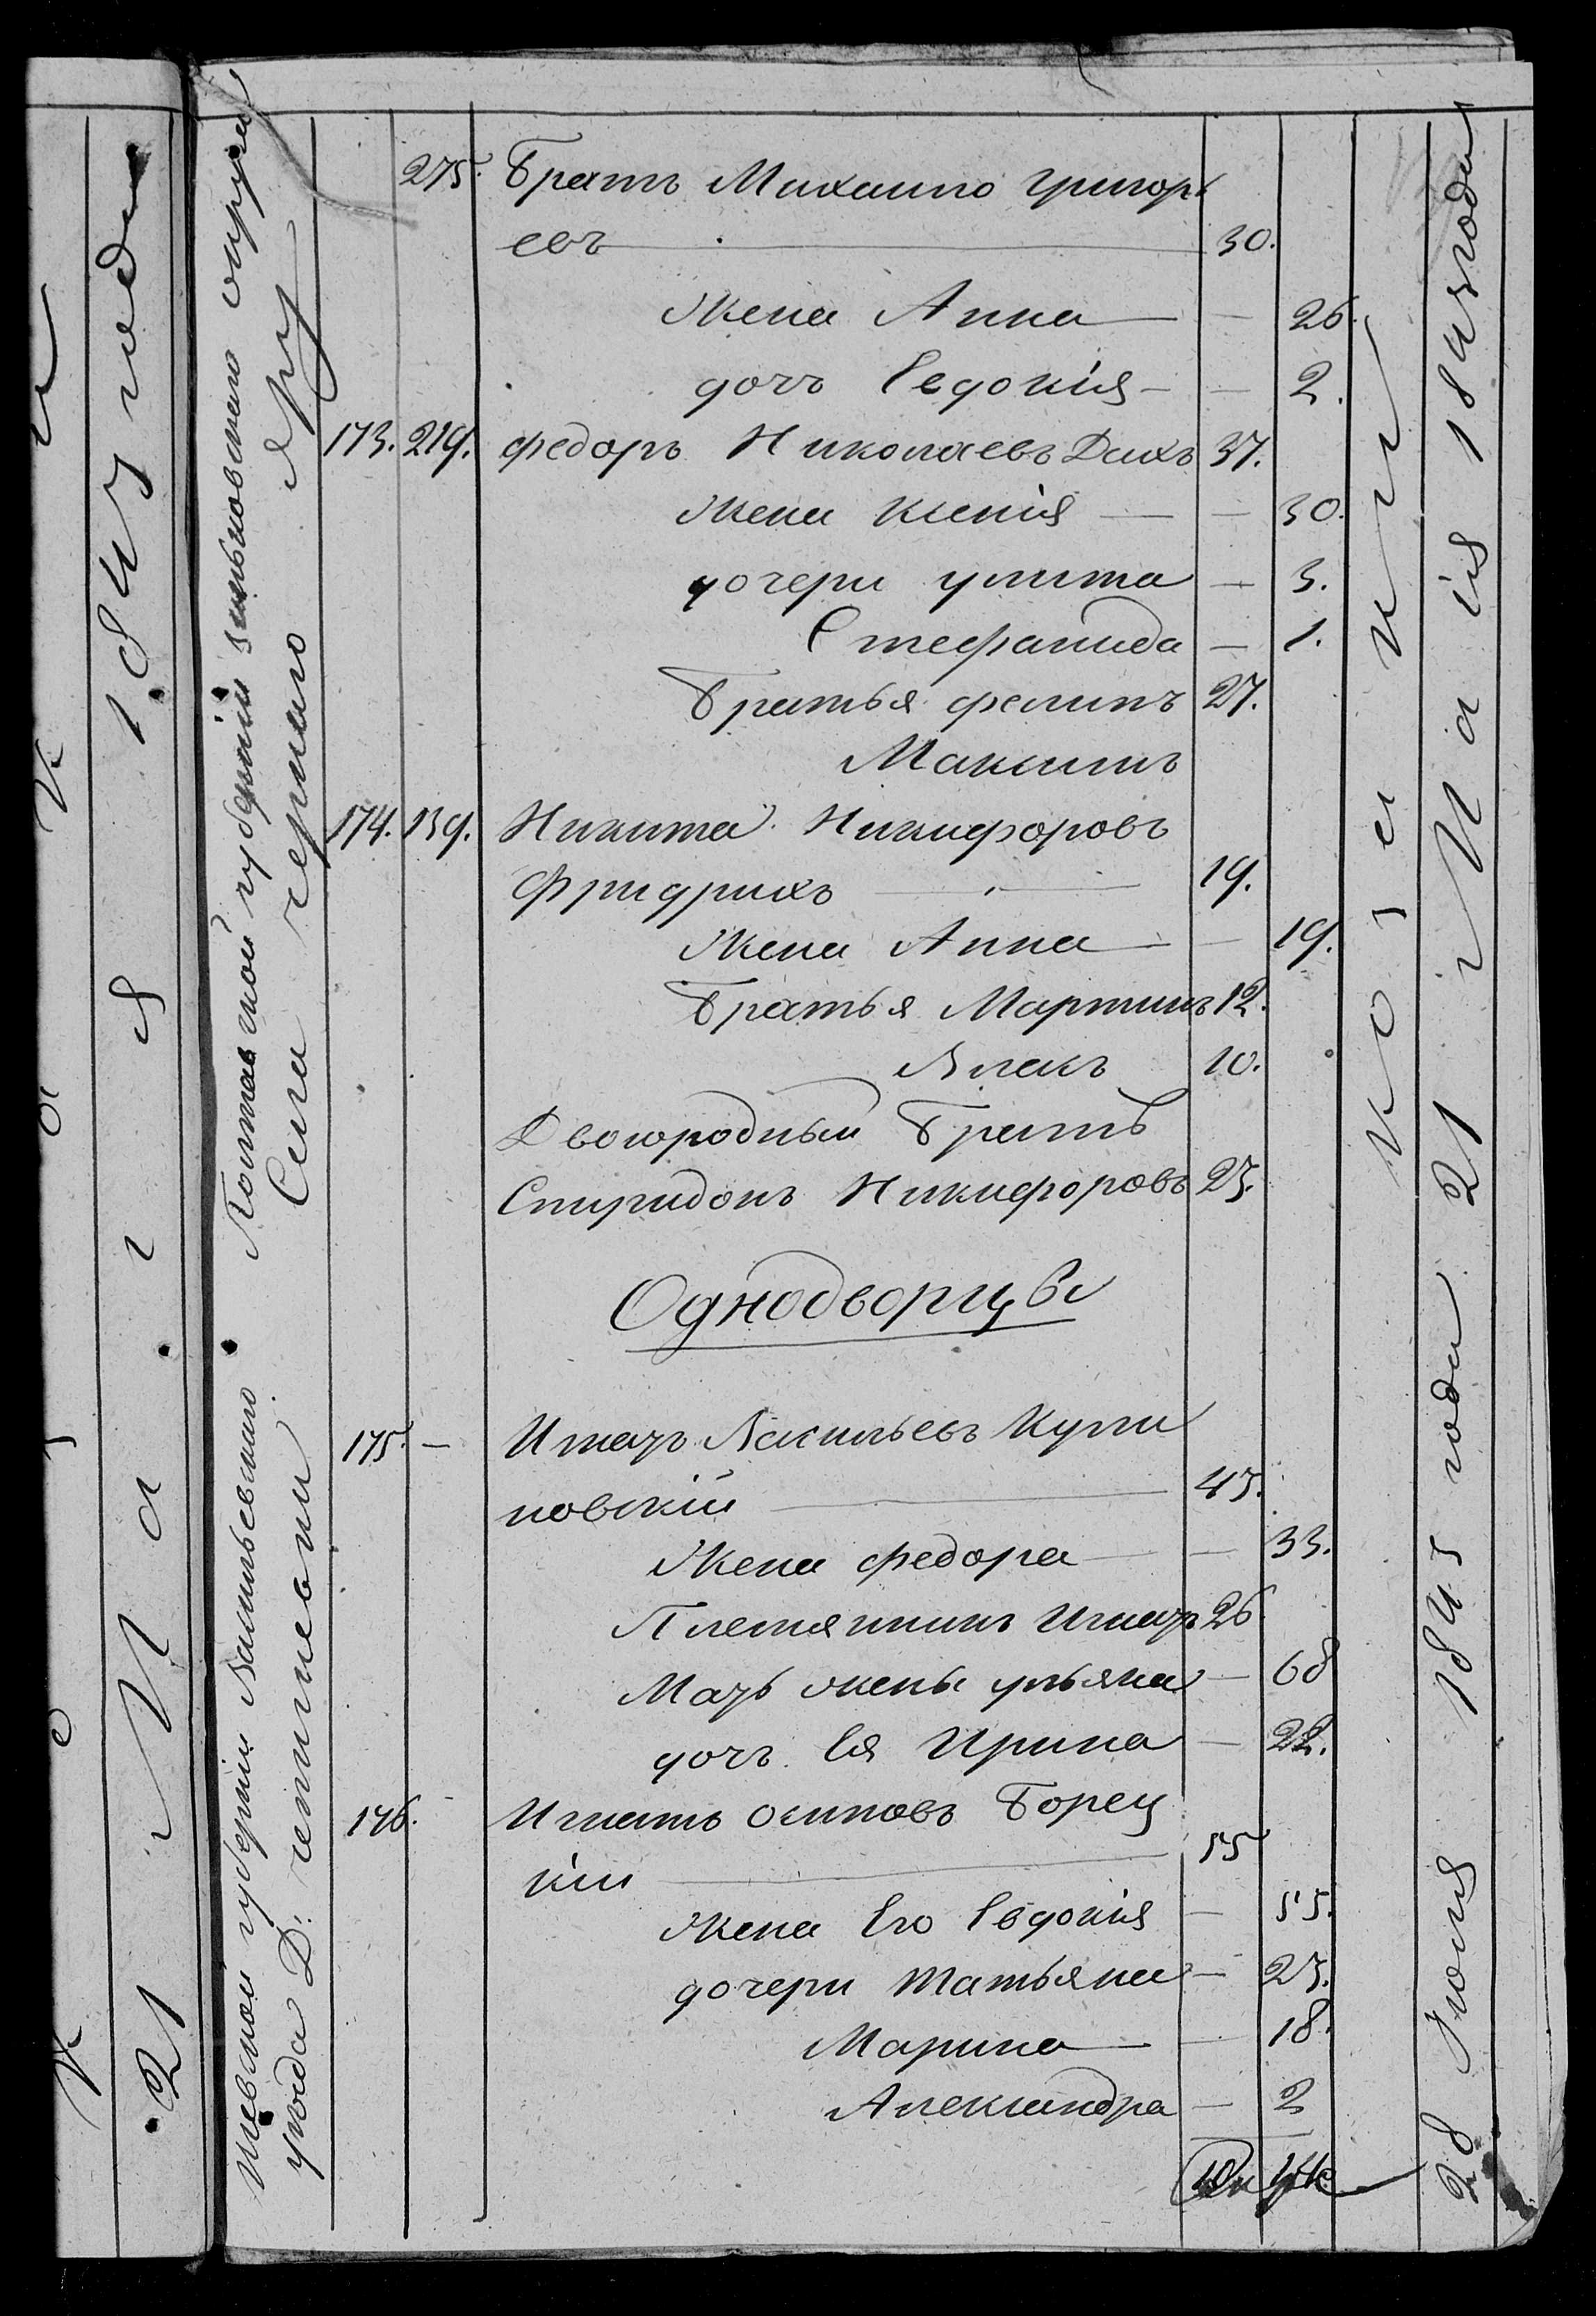 275. Братъ Михайло Григорь
евъ 30.
Жена Анна — 26.
дочь Евдокія — 2.
173. 219. Федоръ Николаевъ Дихъ 37.
Жена Ксенія — 30.
дочери Улита — 3.
Стефанида — 1.
Братья Филипъ 27.
Максимъ
174. 139. Никита Никифоровъ
Фридрихъ 19.
Жена Анна — 19.
Братья Мартинъ 12.
Власъ 10.
Двоюродный Братъ
Спиридонъ Никифоровъ 23.
Однодворцы
175. — Игнатъ Васильевъ
новскій 43.
Жена Федора — 33.
Племянникъ Игнатъ 26
Мать жены Ульяна — 68
дочь Ея Ирина — 22.
176. Игнатъ Осиповъ Борец
кій 55
Жена Его Евдокія — 55.
дочери Татьяна — 23.
Марина — 18.
Александра — 2
Полтавской губерніи Зиньковского округа
Села
Кіевской губерніи Васильевского
уезда Д.
Козаки
28 Іюля 1843 года 21 Мая 1843 года
21 Мая 1843 года